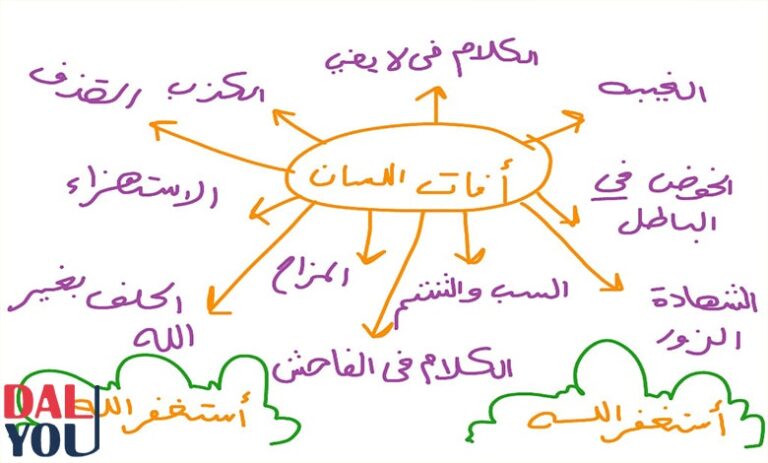 الكلام فى لا يعني
الغيبه
الكزب
القذف
أفات اللسان
الخوض في
الباطل
الاستهزاء
المزاح
السب والشتم
الشهادة
الزور
الحلف بغير
الله
الكلام فى الفاحش
أستغفر الله
أستغفر الله
DAL
YOU